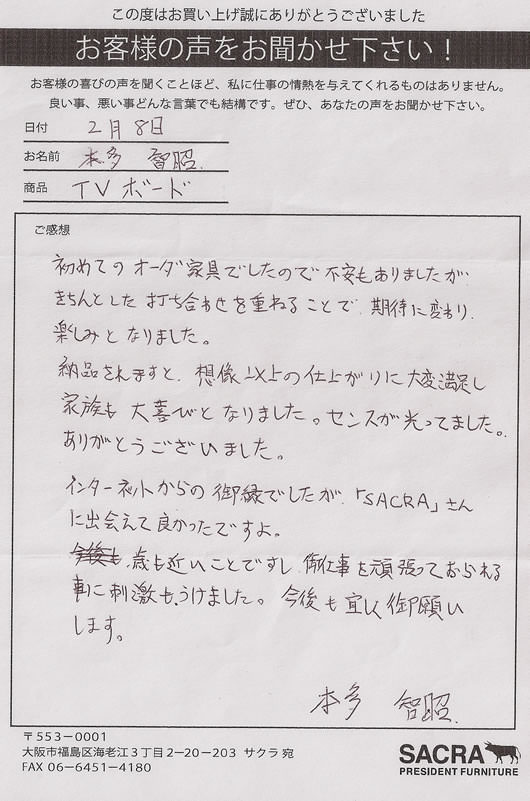 この度はお買い上げ誠にありがとうございました
お客様の声をお聞かせ下さい！
お客様の喜びの声を聞くことほど、私に仕事の情熱を与えてくれるものはありません。
良い事、悪い事どんな言葉でも結構です。ぜひ、あなたの声をお聞かせ下さい。
日付 2月8日
お名前 本多 智昭.
商品 TVボード
ご感想
初めてのオーダ家具でしたので不安もありましたが
きちんとした打ち合わせを重ねることで、期待に変わり
楽しみとなりました。
納品されますと、想像以上の仕上がりに大変満足し
家族も大喜びとなりました。センスが光ってました。
ありがとうございました。
インターネットからの御縁でしたが、「SACRA」さん
に出会えて良かったですよ。
今後も、歳も近いことですし、御仕事を頑張っておられる
事に刺激もうけました。今後も宜しく御願い
します。
本多 智昭.
〒553-0001
大阪市福島区海老江3丁目2-20-203 サクラ 宛
FAX 06-6451-4180
SACRA
PRESIDENT FURNITURE